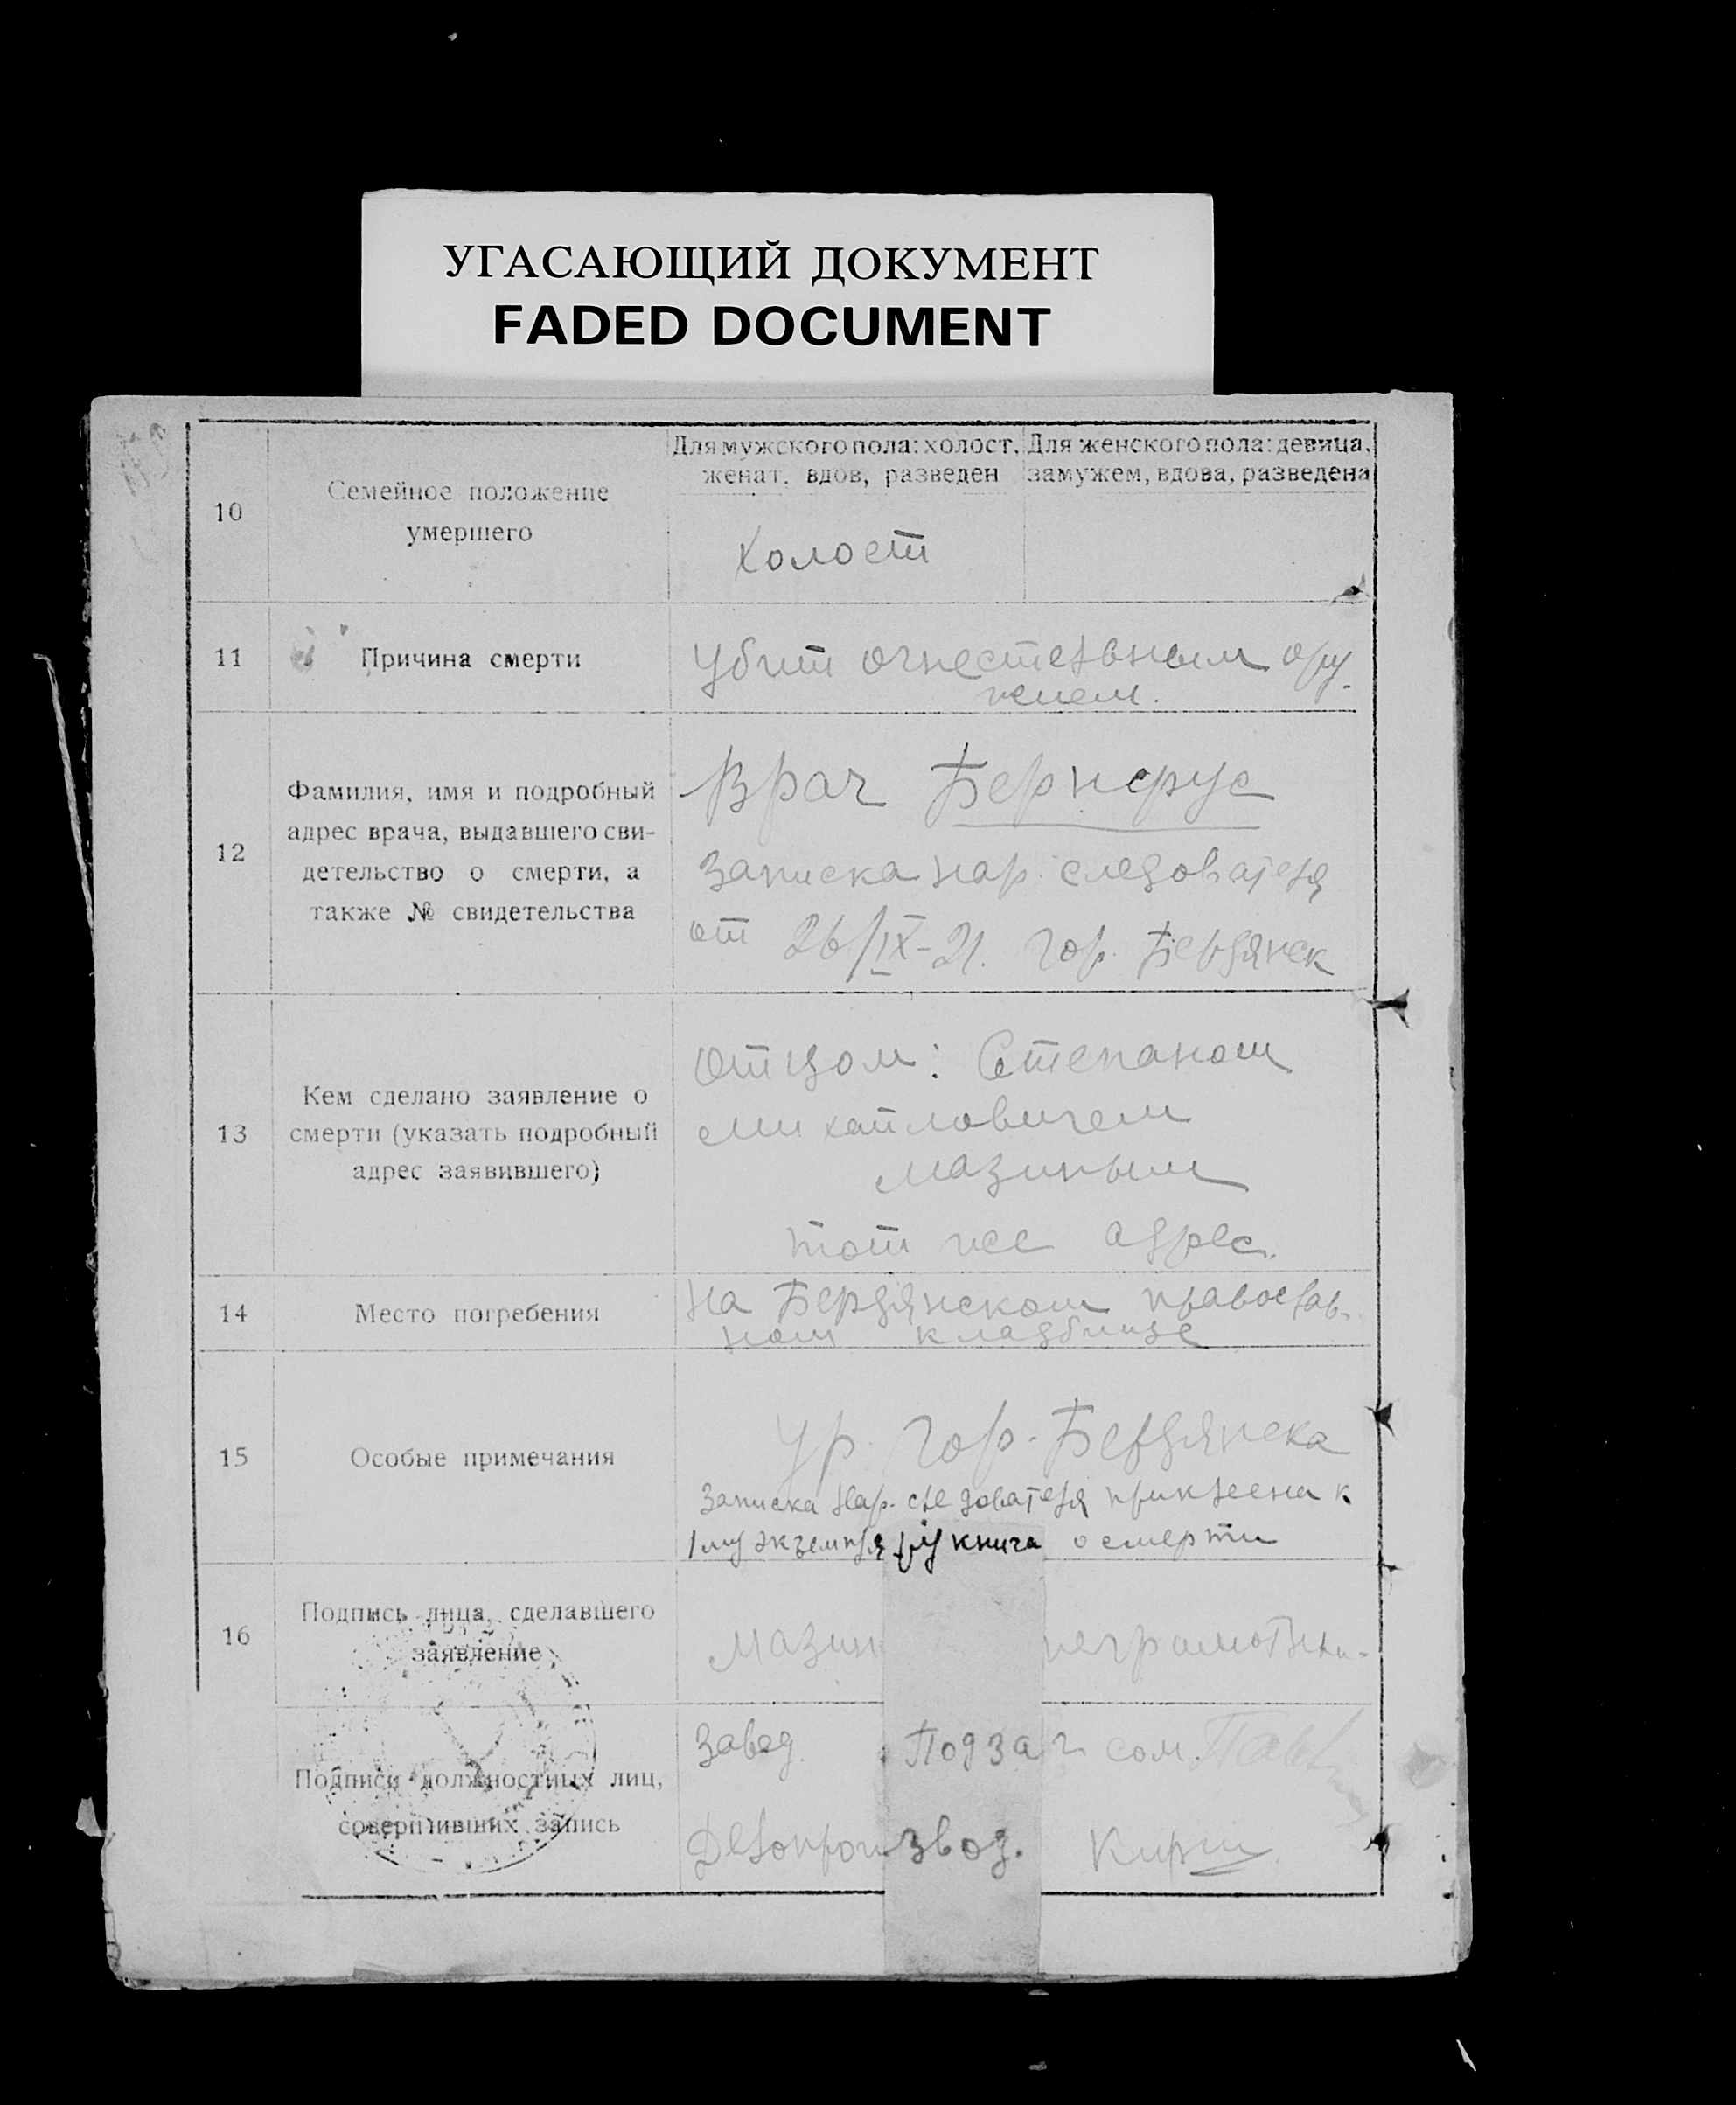 УГАСАЮЩИЙ ДОКУМЕНТ
FADED DOCUMENT
10
Семейное положение
умершего
Для мужского пола: холост,
женат, вдов, разведен
Для женского пола: девица,
замужем, вдова, разведена
Холост
11
Причина смерти
Убит огнестельным ору-
жием.
12
Фамилия, имя и подробный
адрес врача, выдавшего сви-
детельство о смерти, а
также № свидетельства
Врач
Записка нар. следователя
от 26/IX-21. гор. Бердянск
13
Кем сделано заявление о
смерти (указать подробный
адрес заявившего)
Отцом: Степаном
Михайловичем
Мазиным
тот же адрес.
14
Место погребения
На Бердянском православ-
ном кладбище
15
Особые примечания
Ур. гор. Бердянска
Записка нар. следователя приклеена к
1му экземпляру книга о смерти
16
Подпись лица, сделавшего
заявление
Мазин неграмотны-
Подписи должностных лиц,
совершивших запись
Завед. Подзаг.
Делопроизвод. Кирш